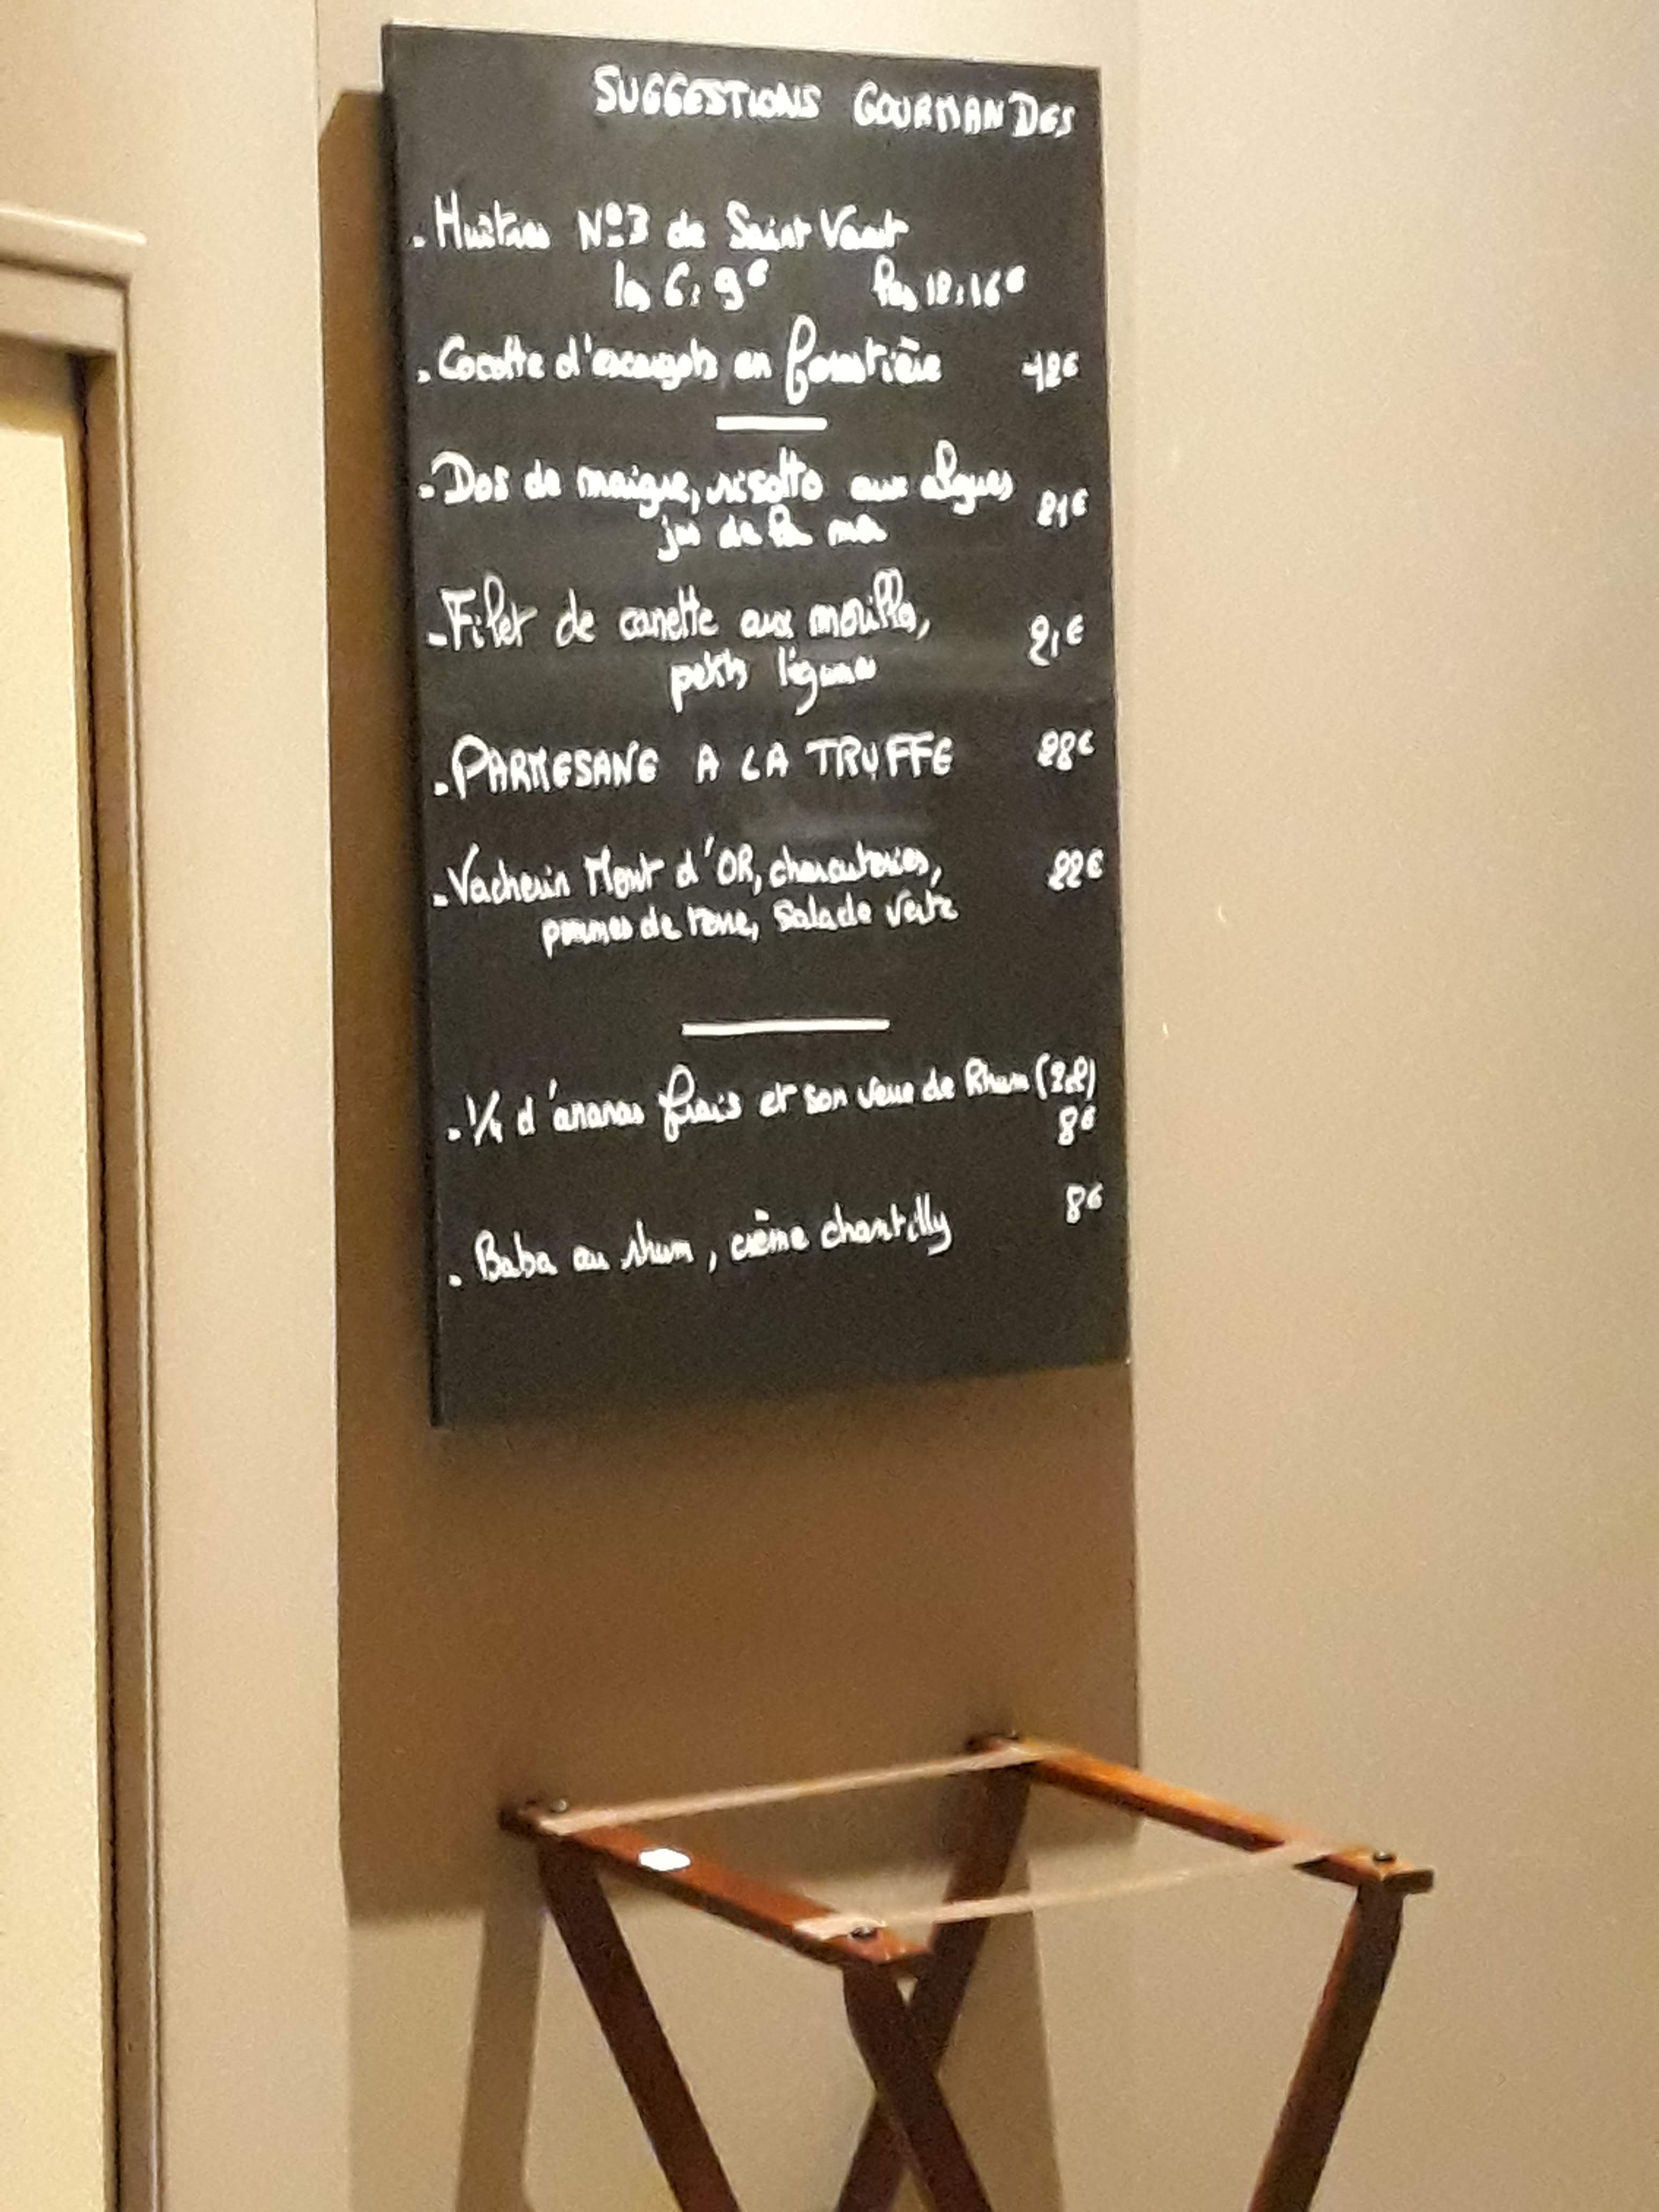 SUGGESTIONS GOURMANDES
- Huîtres N°3 de Saint Vaast
les 6: 9€ les 12: 16€
- Cocotte d'escargots en forestière 12€
- Dos de maigre, risotto aux algues 21€
jus de la mer
- Filet de canette aux morilles, 21€
petits légumes
- PARMESANE A LA TRUFFE 22€
- Vacherin Mont d'OR, charcuteries, 22€
pommes de terre, salade verte
- 1/4 d'ananas frais et son verre de Rhum (2cl)
8€
- Baba au rhum, crème chantilly 8€